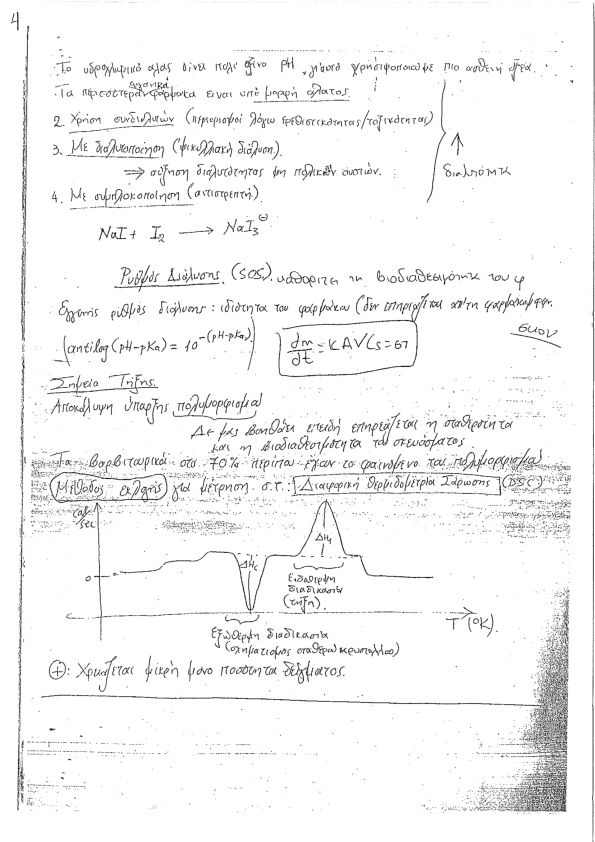 4
Το υδροχλωρικό αλας δίνει πολύ όξινο pH, γι'αυτό χρησιμοποιούμε πιο ασθενή οξέα.
οργανικά
Τα περισσότερα φάρμακα ειναι υπό μορφή αλατος.
2. Χρήση συνδιαλυτών (περιορισμοί λόγω ερεθιστικότητας/τοξικότητας)
3. Με διαλυτοποίηση (μικυλλιακή διάλυση).
⇒ αύξηση διαλυτότητας μη πολικών ουσιών.
4. Με συμπλοκοποίηση (αντιστρεπτή).
NaI + I2 → NaI3⊖
Ρυθμός Διάλυσης. (SOS). καθορίζει τη βιοδιαθεσιμότητα του φ
Εγγενής ρυθμός διάλυσης: ιδιότητα του φαρμάκου (δεν επηρεάζεται απ'τη φαρμακομορφη.
(antilog(pH-pKa) = 10^-(pH-pKa))
dm/dt = KAVCs = στ
Σημείο Τήξης.
Αποκάλυψη ύπαρξης πολυμορφισμού
μας βοηθάει επειδή επηρεάζεται η σταθερότητα
και η βιοδιαθεσιμότητα του σκευάσματος.
Τα βαρβιτουρικά στο 70% περίπου έχουν το φαινόμενο του πολυμορφισμού
Μέθοδος εκλογής για μέτρηση σ.τ.: Διαφορική Θερμιδομετρία Σάρωσης (DSC)
cal/sec
ΔHf
ΔHc
0
Ενδόθερμη
διαδικασία
(τήξη).
T (°K).
Εξώθερμη διαδικασία
(σχηματισμος σταθερών κρυστάλλου)
⊕: Χρειάζεται μικρή μονο ποσότητα δείγματος.